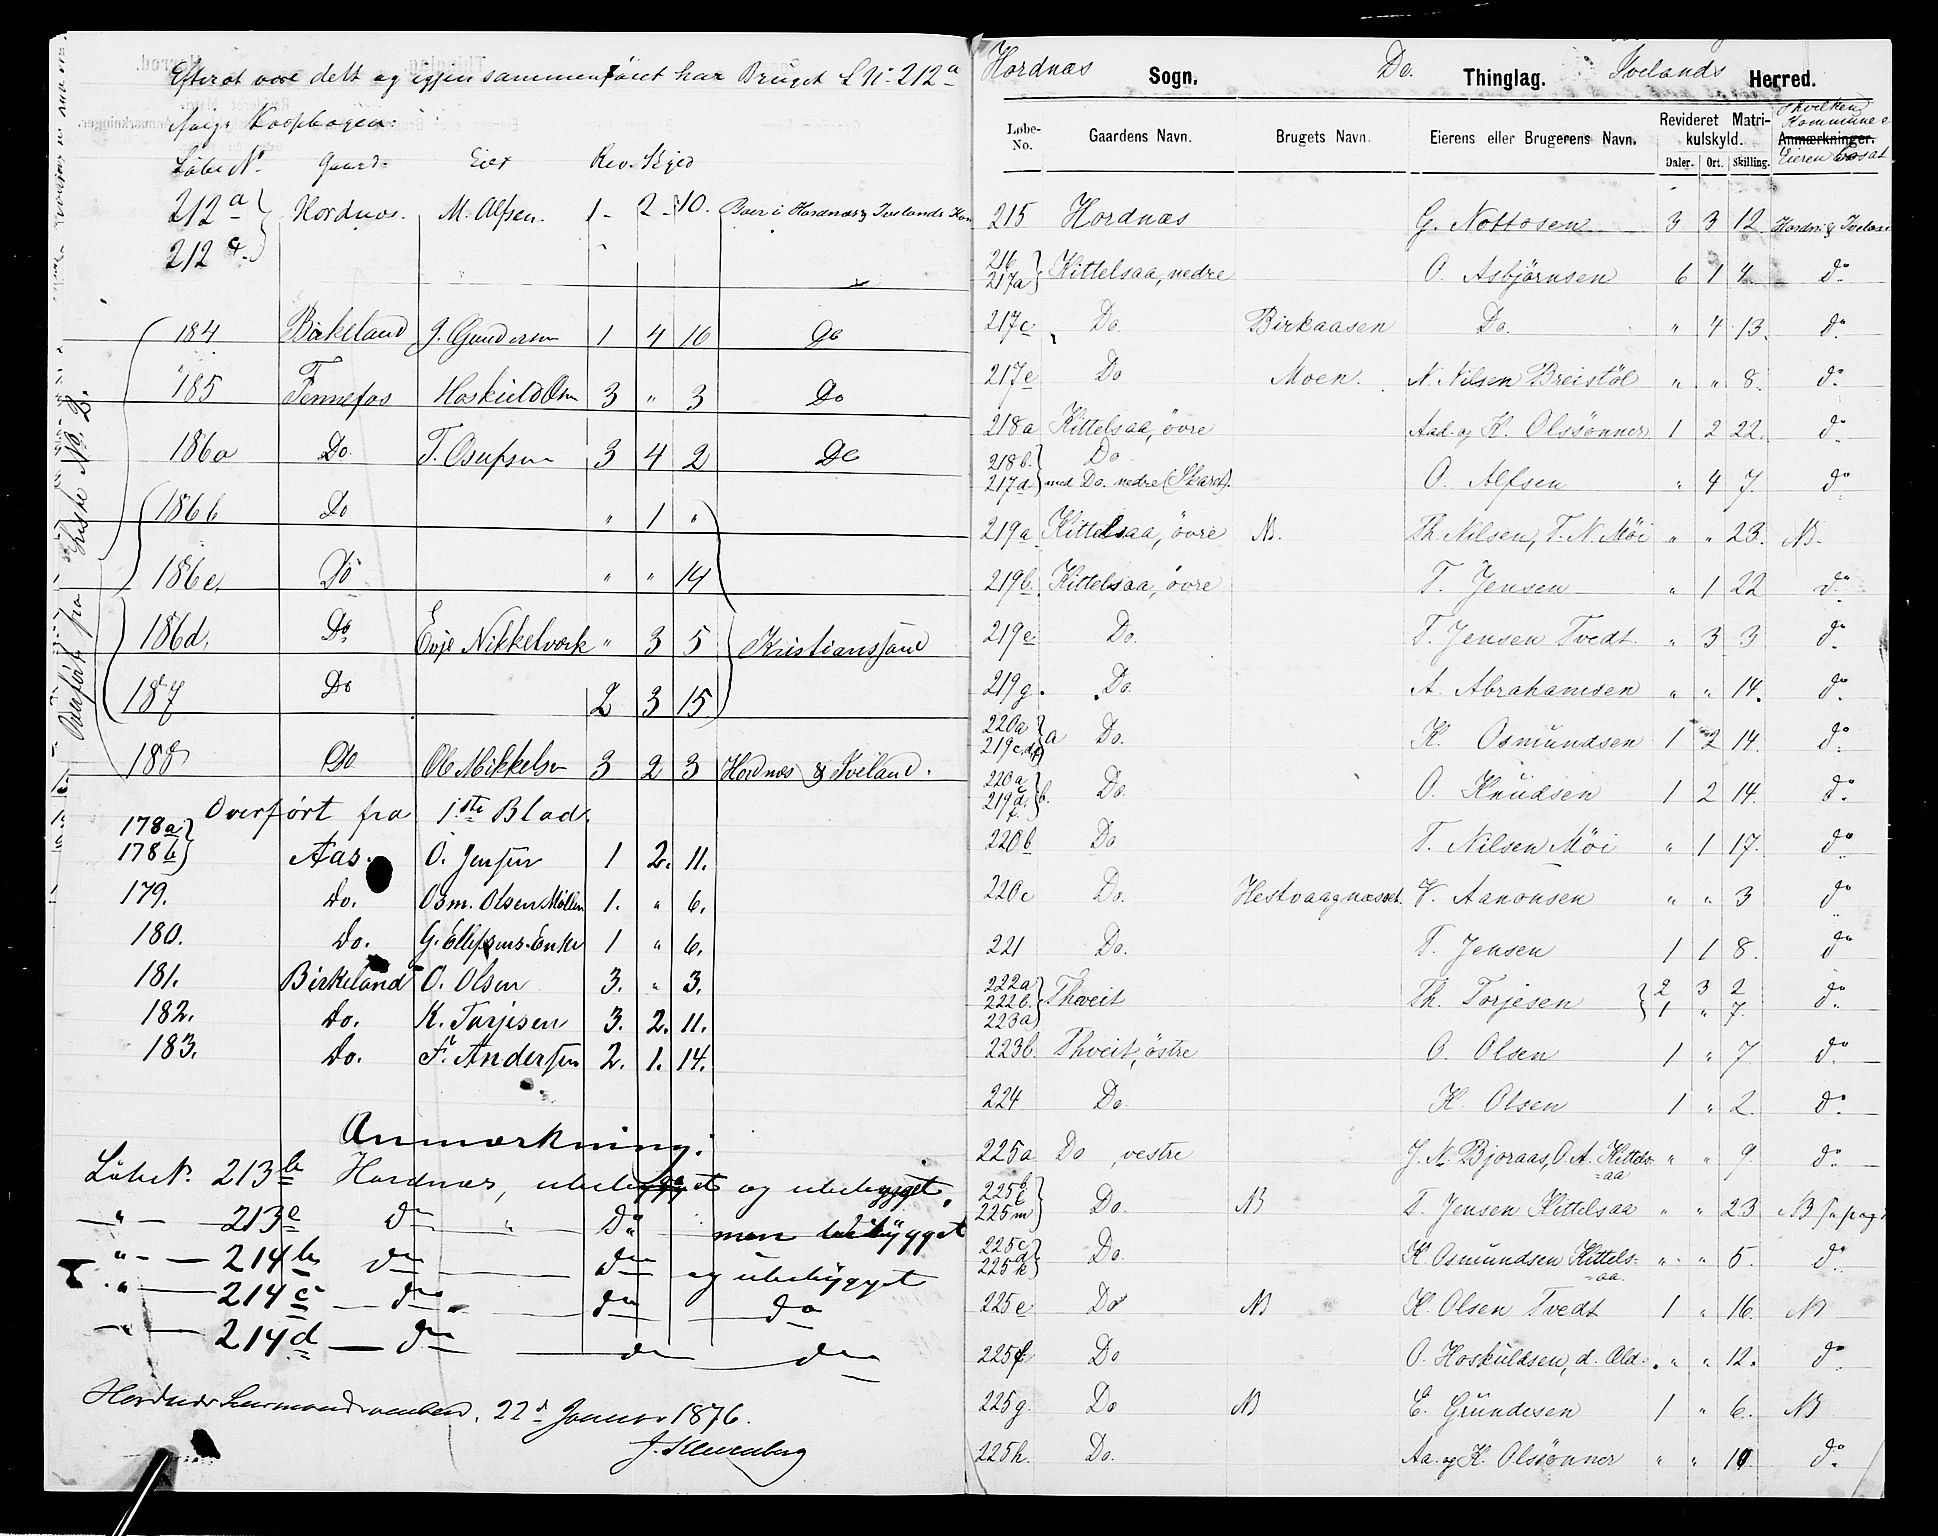 Efterat være delt og igjen sammenføiet har Bruget L N. 212a
Løbe N. Gaard. Eier Rev. Skjld
212a } Hordnæs. M. Alfsen. 1 - 2 - 10. Boer i Hordnæs & Ivelands
212c
184 Birkeland J. Gundersen 1 4 16 Do
185 Fennefos Hoskuld Olsen 3 " 3 Do
186a Do. T. Osufsen 3 4 2 Do
186b Do " 1 "
186c. Do " " 14
186d. Do. Evje Nikkelværk " 3 5 Kristianssand
187 Do 2 3 15
188 Do Ole Mikkelsen 3 2 3 Hordnæs & Iveland.
Overført fra Liste No. 2.
Overført fra 1ste Blad.
178a }
178b } Aas. O. Jensen 1 2. 11.
179. Do. Osm. Olsen Møllen 1. " 6.
180. Do. G. Ellefsens Enke 1 " 6.
181. Birkeland O. Olsen 3. " 3.
182. Do. K. Tarjesen 3. 2. 11.
183. Do. F. Andersen 2. 1. 14.
Anmærkning.
Løbe N. 213b Hordnæs, og ubebygget.
—"— 213c do " Do men bebygget
—"— 214b do do og ubebygget
—"— 214c do do do
—"— 214d do do do
Hordnæs 22d Januar 1876.
Hordnæs Sogn. Do. Thinglag. Ivelands Herred.
Løbe-No. Gaardens Navn. Brugets Navn. Eierens eller Brugerens Navn. Revideret Matrikulskyld. Daler. Ort. Skilling. Anmærkninger. I hvilken Kommune er Eieren bosat
215 Hordnæs G. Nottosen 3 3 12 Hordn. & Iveland
216 }
217a } Kittelsaa, nedre O. Asbjørnsen 6 1 4. do
217c Do. Birkaasen Do. " 4 13. do
217e Do Moen. N. Nilsen Breistöl " " 8. do
218a Kittelsaa, övre Aad. og K. Olssønner 1 2 22. do
218b. } Do
217d } med Do. nedre (Skaret). O. Alfsen " 4 7. do
219a Kittelsaa, övre NB. Th. Nilsen, T. N. Möi " " 23. NB.
219b. Kittelsaa, övre T. Jensen " 1 22 do
219e Do. T. Jensen Tvedt " 3 3 do
219g. Do. A. Abrahamsen " " 14. do
220a }
219c,d,f } a Do. K. Osmundsen 1 2 14. do
220a }
219d. f. } b. Do. O. Knudsen 1 2 14. do
220b Do T. Nilsen Möi " 1 17. do
220c Do. Hestvaagnæset. V. Aanonsen " " 3 do
221 Do. T. Jensen 1 1 8. do
222a }
222b. } Thveit Th. Torjesen { 2 3 2 do
223a } 1 " 7.
223b. Thveit, östre O. Olsen 1 " 7 do
224 Do. K. Olsen 1 " 2. do
225a Do , vestre J. N. Bjoraas, O. A. Kittelsaa " " 9. do
225b }
225m } Do. NB T. Jensen Kittelsaa " " 23 NB
225c }
225k } Do. K. Osmundsen Kittelsaa. " " 5. do
225e Do NB K. Olsen Tvedt 1 " 16. NB
225f. Do O. Hoskuldsen, d. Æld. " " 12. do
225g. Do NB E. Grundesen 1 " 6. NB
225h. Do. Aa. og K. Olssønner " " 10 do